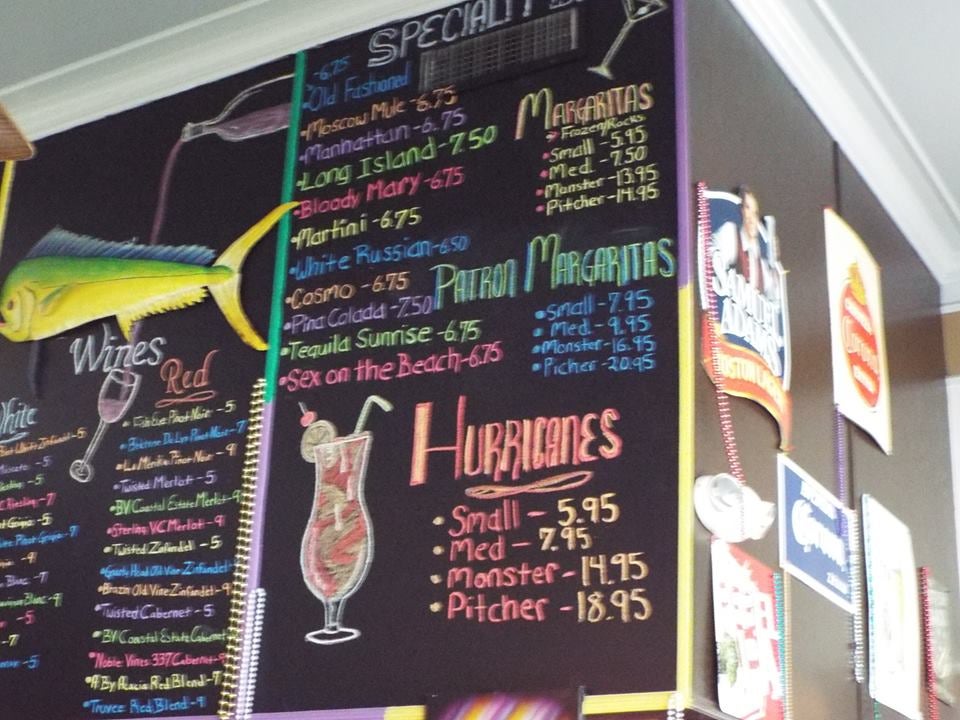 SPECIALTY
-6.75
•Old Fashioned
•Moscow Mule -6.75
•Manhattan -6.75
•Long Island -7.50
•Bloody Mary -6.75
•Martini -6.75
•White Russian -6.50
•Cosmo -6.75
•Pina Colada -7.50
•Tequila Sunrise -6.75
•Sex on the Beach -6.75
MARGARITAS
Frozen/Rocks
•Small -5.95
•Med. -7.50
•Monster -13.95
•Pitcher -14.95
PATRON MARGARITAS
•Small -7.95
•Med. -9.95
•Monster -16.95
•Picher -20.95
HURRICANES
•Small - 5.95
•Med - 7.95
•Monster - 14.95
•Pitcher - 18.95
Wines
White
Zinfandel -5
-5
-5
Riesling -7
-5
Pinot Grigio -7
-9
Blanc -7
Blanc -9
-5
-7
-5
Red
•Fish Eye Pinot Noir -5
Pinot Noir -7
•La Merika Pinot Noir -9
•Twisted Merlot -5
•BV Coastal Estate Merlot -9
•Sterling V.C. Merlot -9
•Twisted Zinfandel -5
•Gnarly Head Old Vine Zinfandel
•Brazin Old Vine Zinfandel -9
•Twisted Cabernet -5
•BV Coastal Estate Cabernet
•Noble Vines 337 Cabernet -9
•A By Acacia Red Blend -7
•Truvee Red Blend -9
SAMUEL
ADAMS
BOSTON LAGER
Corona
Corona